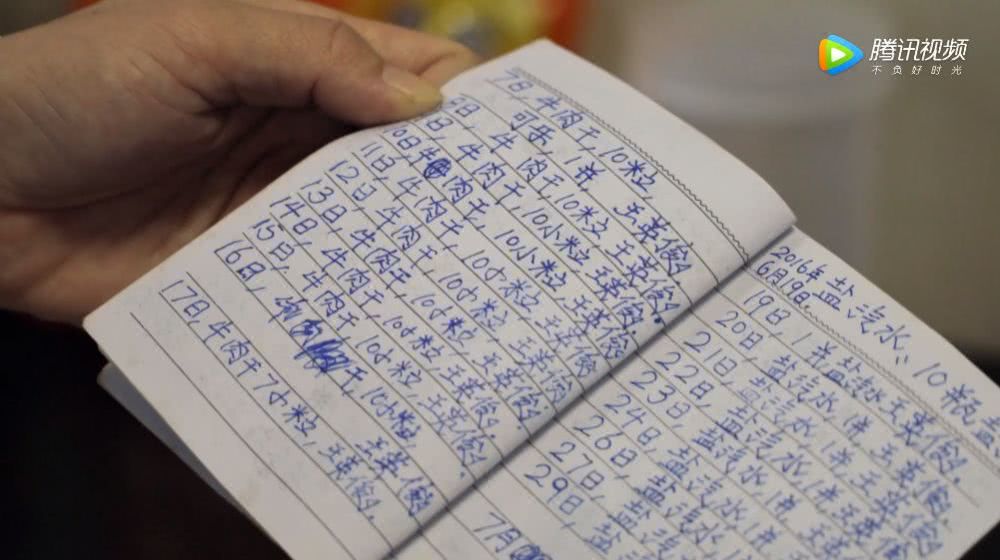 腾讯视频
不负好时光
7日,牛肉干,10粒,
可乐,1井 王英俊
8日,牛肉干,10粒,王英俊
日,牛肉干,10小粒,王英俊
10日牛肉干,10小粒,王英俊
11日,牛肉干,10小粒,王英俊
12日,牛肉干,10小粒,王英俊
13日,牛肉干,10小粒,王英俊
14日,牛肉干,10小粒,王英俊
15日,牛肉干,10小粒,王英俊
16日,肉干,10小粒
王英俊
17日,牛肉干7小粒,王英俊,
2016年
6月19日 盐汽水、10瓶盐
19日1井盐汽水王英俊
20日,盐汽水,1井王英俊
21日,盐汽水,1井王英俊
22日,盐汽水,1井王英
23日,盐汽水,1井
24日,盐汽水
26日,盐汽水
27日,盐
29日,盐
7月